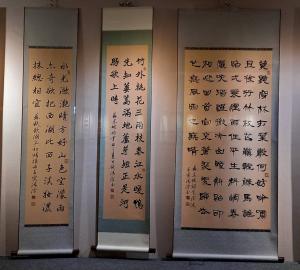 莫聽穿林打葉聲何妨吟嘯
且徐行竹杖芒鞋輕勝馬誰
怕一蓑煙雨任平生料峭春
風吹酒醒微冷山頭斜照卻
相迎回首向來蕭瑟處歸去
也無風雨也無晴
竹外桃花三兩枝春江水暖鴨
先知蔞蒿滿地蘆芽短正是河
豚欲上時
水光瀲灩晴方好山色空濛雨
亦奇欲把西湖比西子淡妝濃
抹總相宜